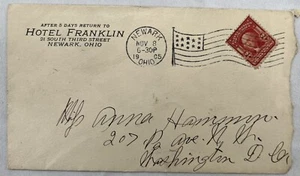 AFTER 5 DAYS RETURN TO
HOTEL FRANKLIN
31 SOUTH THIRD STREET
NEWARK, OHIO
NEWARK
NOV 8
6-30P
1905
OHIO
Miss Anna
207 Ave. N.
Washington D C